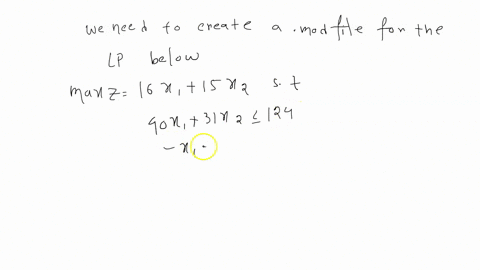 we need to create a .mod file for the
LP below
max z = 16 x₁ + 15 x₂ s. t
40x₁ + 31x₂ ≤ 124
- x₁